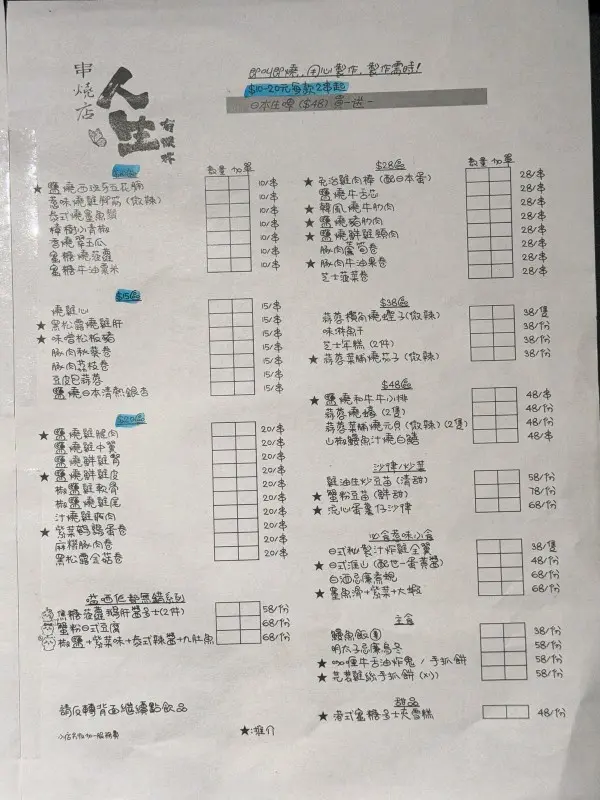 串燒店
人生
有限味
即叫即燒,用心製作,製作需時!
$10-20元每款2串起
日本生啤 ($48) 買一送一
數量 加單
★ 鹽燒西班牙豆花腩 10/串
惹味燒雞腳筋 (微辣) 10/串
泰式燒墨魚鬚 10/串
樟樹小青椒 10/串
香燒翠玉瓜 10/串
蜜糖燒菠蘿 10/串
蜜糖牛油粟米 10/串
$15區
燒雞心 15/串
★ 黑松露燒雞肝 15/串
★ 味噌松板豬 15/串
豚肉秋葵卷 15/串
豚肉荔枝卷 15/串
豆皮包蒜蓉 15/串
鹽燒日本清熱銀杏 15/串
$20區
★ 鹽燒雞腿肉 20/串
鹽燒雞中翼 20/串
鹽燒鮮雞腎 20/串
★ 鹽燒鮮雞皮 20/串
椒鹽雞軟骨 20/串
椒鹽燒雞尾 20/串
汁燒雞豚肉 20/串
★ 紫菜鵪鶉蛋卷 20/串
麻糬豚肉卷 20/串
黑松露金菇卷 20/串
焦糖菠蘿鵝肝醬多士(2件) 58/份
蟹粉日式豆腐 68/份
椒鹽+紫菜味+泰式辣醬+九肚魚 68/份
請反轉背面繼續點飲品
★:推介
$28區
數量 加單
★ 免治雞肉棒 (配日本蛋) 28/串
鹽燒牛舌芯 28/串
★ 韓風燒牛肋肉 28/串
★ 鹽燒豬肋肉 28/串
★ 鹽燒鮮雞頸肉 28/串
豚肉蘆筍卷 28/串
★ 豚肉牛油果卷 28/串
芝士菠菜卷 28/串
$38區
蒜蓉欖角燒蟶子(微辣) 38/隻
味琳魚干 38/份
芝士年糕 (2件) 38/份
★ 蒜蓉菜脯燒茄子 (微辣) 38/份
$48區
★ 鹽燒和牛牛小排 48/串
蒜蓉燒蠔 (2隻) 48/份
蒜蓉菜脯燒元貝 (微辣) (2隻) 48/份
山椒鰻魚汁燒白鱔 48/串
沙律/炒菜
雞油生炒豆苗 (清甜) 58/份
★ 蟹粉豆苗 (鮮甜) 78/份
★ 流心蛋薯仔沙律 68/份
必食惹味小食
日式秘製汁炸雞全翼 38/隻
★ 日式淮山 (配世一蛋黃醬) 48/份
白酒忌廉煮蜆 68/份
★ 墨魚滑+紫菜+大蝦 68/份
主食
鰻魚飯 38/份
明太子忌廉烏冬 58/份
★ 咖喱牛舌油炸鬼 / 手抓餅 58/份
★ 芫荽雞絲手抓餅 (凍) 58/份
甜品
★ 港式蜜糖多士夾雪糕 48/份